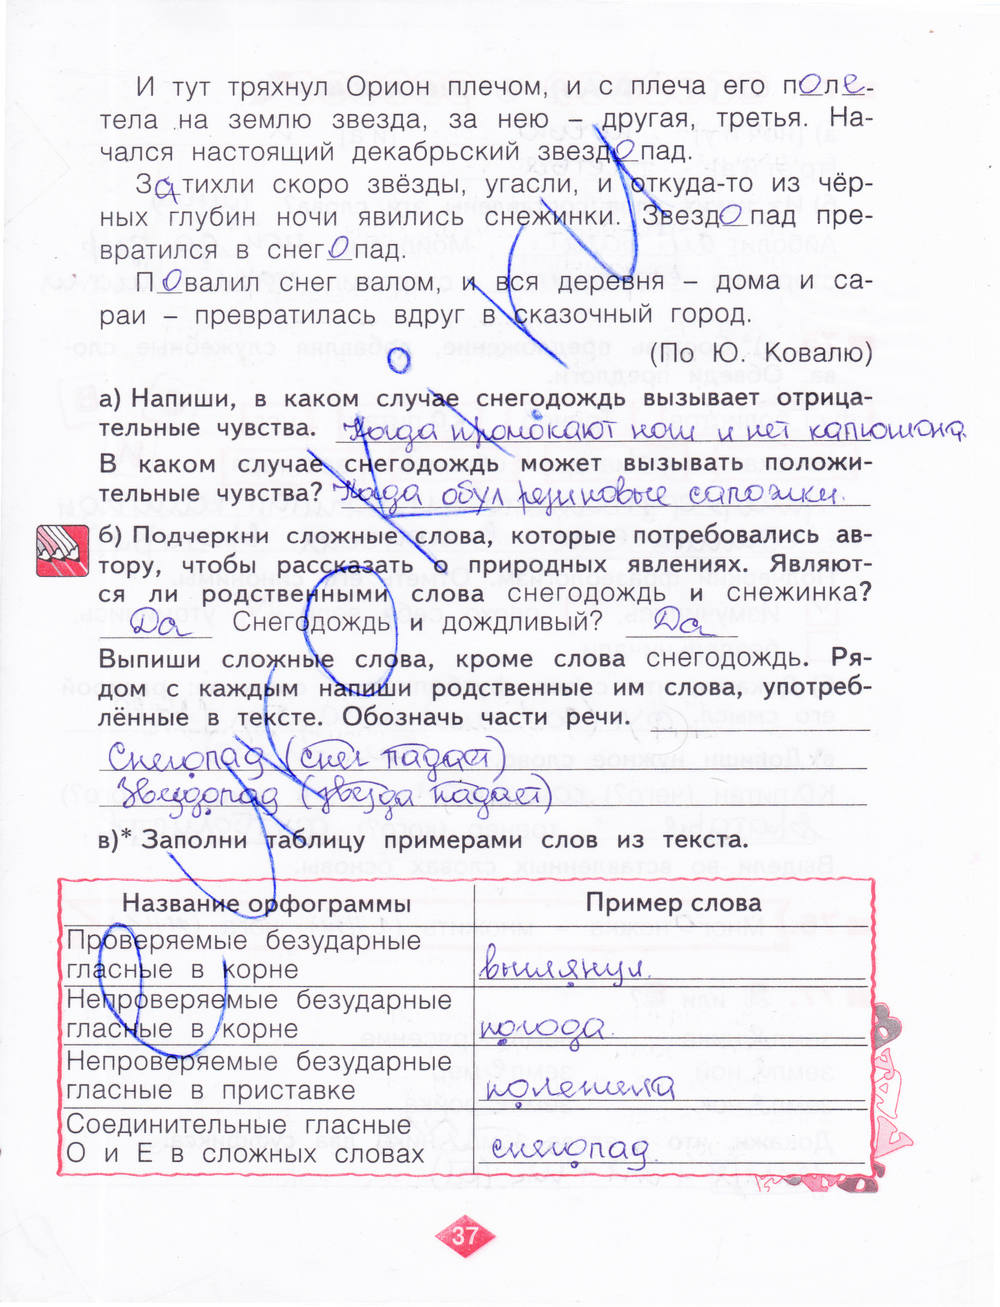 И тут тряхнул Орион плечом, и с плеча его поле-
тела на землю звезда, за нею – другая, третья. На-
чался настоящий декабрьский звездопад.
Затихли скоро звёзды, угасли, и откуда-то из чёр-
ных глубин ночи явились снежинки. Звездопад пре-
вратился в снегопад.
Повалил снег валом, и вся деревня – дома и са-
раи – превратилась вдруг в сказочный город.
(По Ю. Ковалю)
а) Напиши, в каком случае снегодождь вызывает отрица-
тельные чувства. Когда промокают ноги и нет капюшона.
В каком случае снегодождь может вызывать положи-
тельные чувства? Когда обул резиновые сапожки.
б) Подчеркни сложные слова, которые потребовались ав-
тору, чтобы рассказать о природных явлениях. Являют-
ся ли родственными слова снегодождь и снежинка?
Да Снегодождь и дождливый? Да
Выпиши сложные слова, кроме слова снегодождь. Ря-
дом с каждым напиши родственные им слова, употреб-
лённые в тексте. Обозначь части речи.
Снегопад (снег падает)
Звездопад (звезда падает)
в)* Заполни таблицу примерами слов из текста.
Название орфограммы Пример слова
Проверяемые безударные
гласные в корне выглянул.
Непроверяемые безударные
гласные в корне погода.
Непроверяемые безударные
гласные в приставке полетела
Соединительные гласные
О и Е в сложных словах снегопад.
37